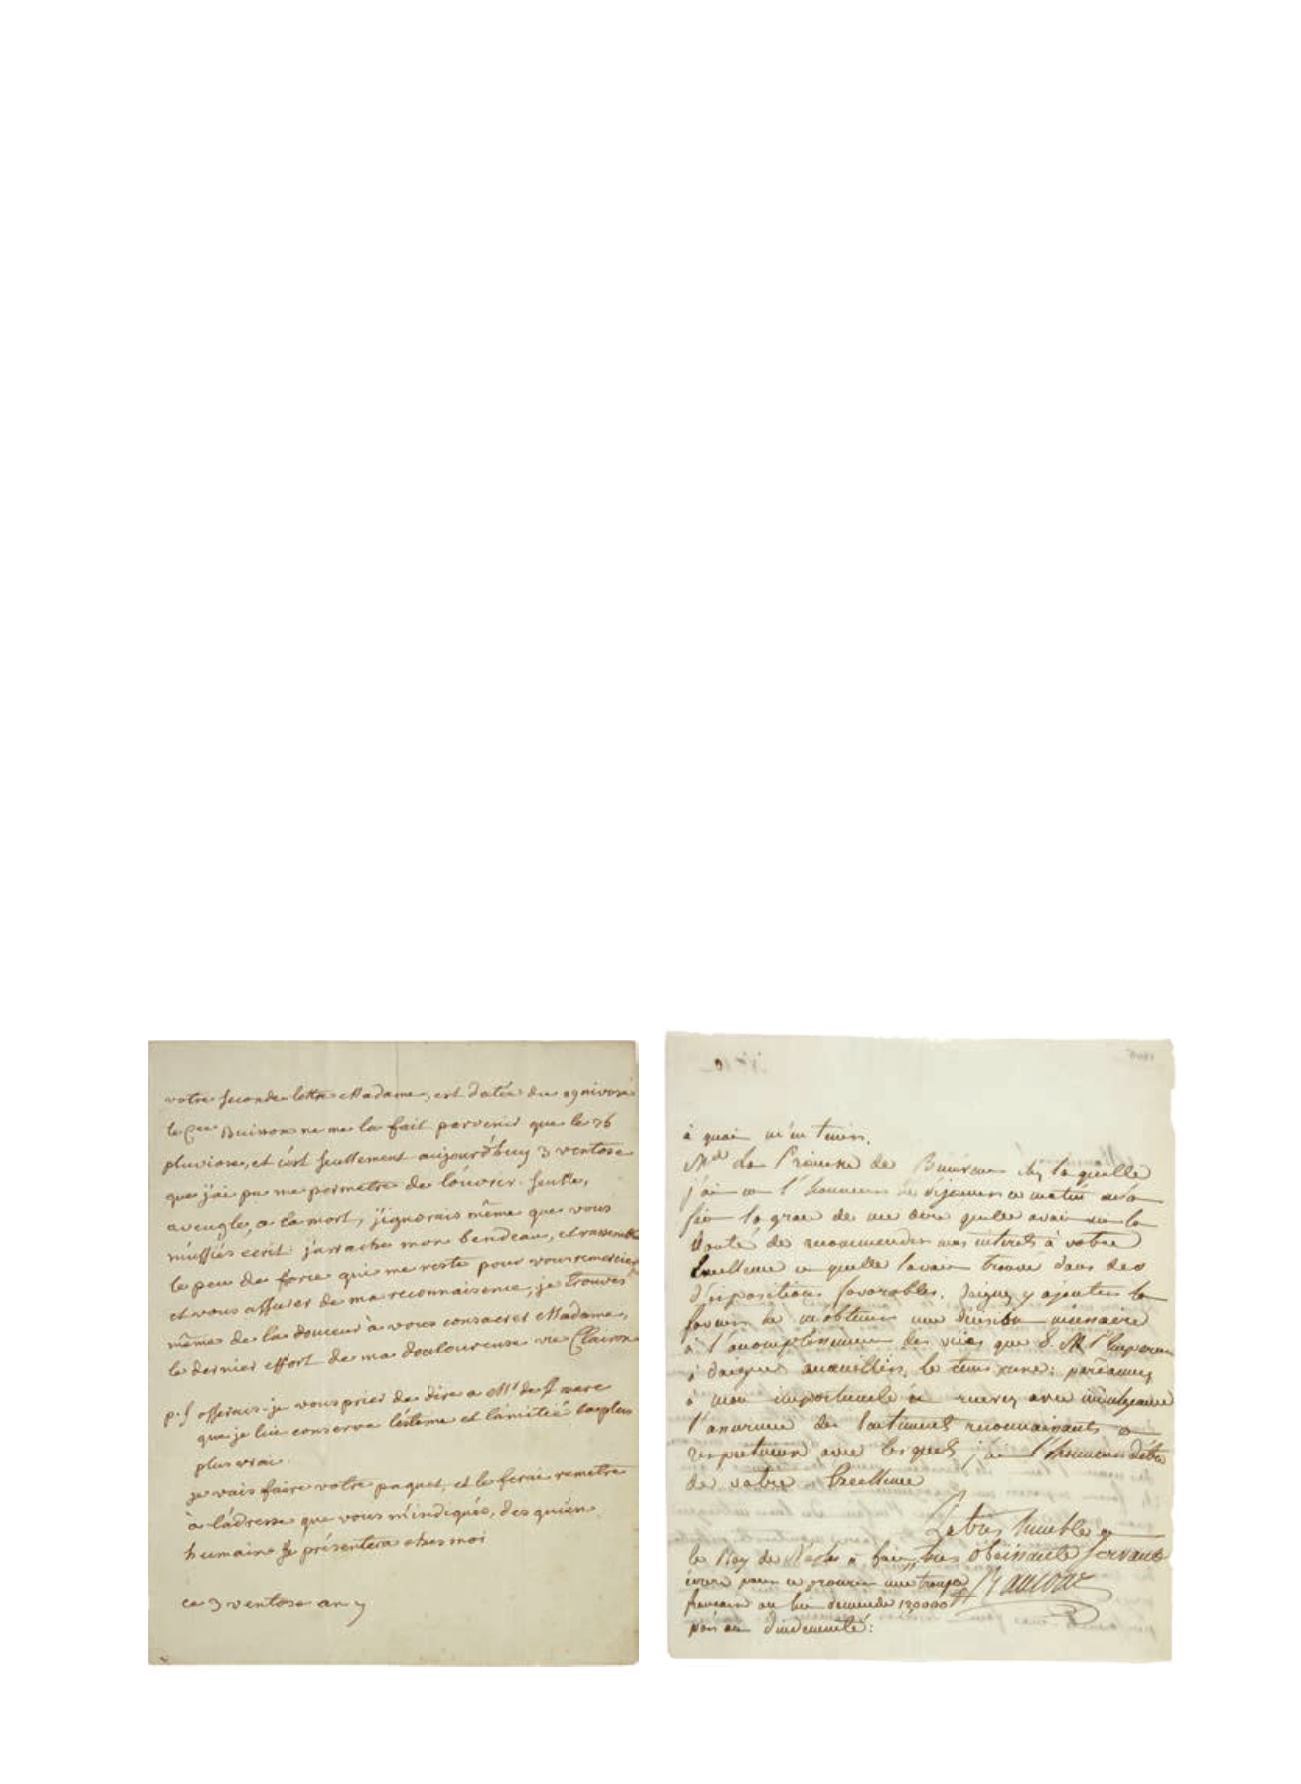 votre seconde lettre Madame, est datée du 29 nivose
le Cen Buisson ne me la fait parvenir que le 26
pluviose, et c'est seullement aujourd'huy 3 ventose
que j'ai pu me permetre de l'ouvrir. seulle,
aveugle, a la mort, j'ignorais même que vous
m'ussiés ecrit. j'arrache mon bendeau, et rassemble
le peu de force qui me reste pour vous remercier
et vous assurer de ma reconnaisence, je trouves
même de la douceur à vous consacrer Madame,
le dernier effort de ma douloureuse vie Clairon
p.s oserais-je vous prier de dire a Mr de st marc
que je lui conserve l'estime et l'amitié la plus
plus vrai.
je vais faire votre paquet, et le ferai remetre
à l'adresse que vous m'indiqués, des qu'un
humain se présentera chés moi
ce 3 ventose an 7
à quoi m'en tenir.
Md la Princesse de chez laquelle
j'ai eu l'honneur de déjeuner ce matin m'a
fait la grace de me dire qu'elle avait eu la
bonté de recommander mes interets à votre
Excellence et qu'elle l'avait trouvé dans des
dispositions favorables. daignez y ajouter la
faveur de m'obtenir une décision nécessaire
à l'accomplissement des vues que S. M. l'Empereur
à daigné accueillir, le tems presse: pardonnez
à mon importunité et recevez avec indulgence
l'assurance des sentiments reconnaissants et
respectueux avec lesquels j'ai l'honneur d'être
de votre Excellence
La très humble et
très obéissante servante
Raucour
le Roy de Naples a fait
écrire pour se procurer une troupe
française on lui demande 120000
pour indemnité: